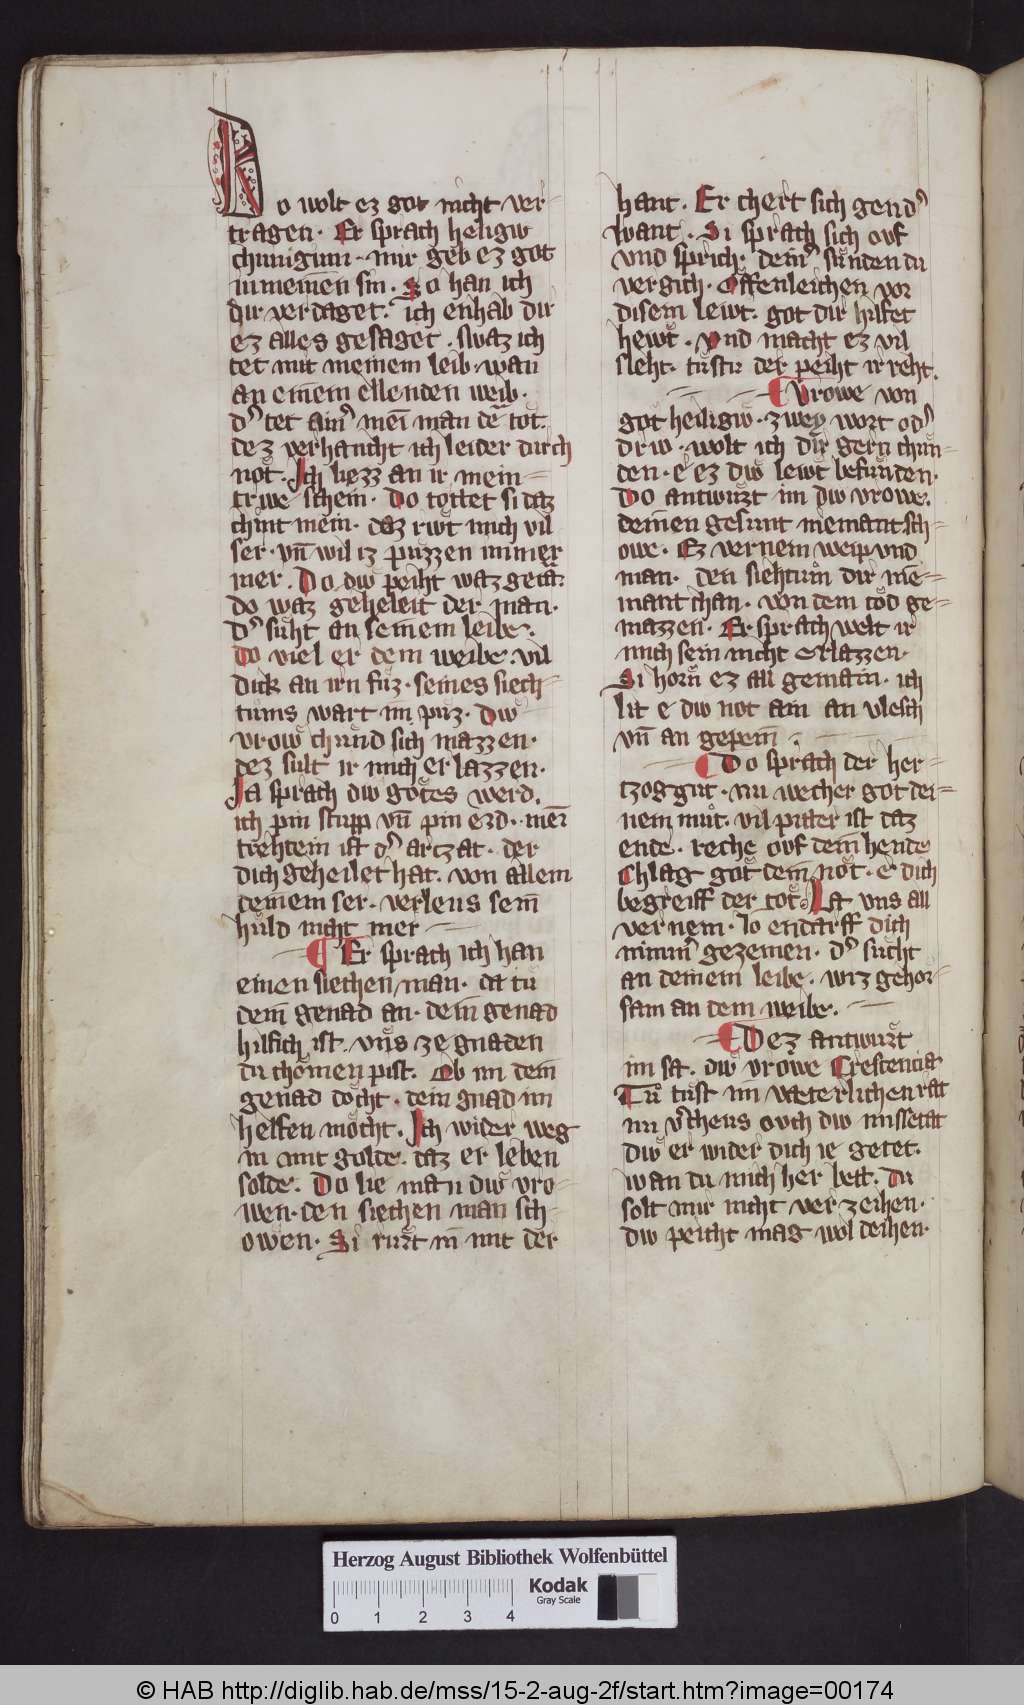 o wolt ez got nicht ver-
tragen. Er sprach heligiv
chunigun. mir geb ez got
in meinen sin. So han ich
dir verdaget. ich enhab dir
ez alles gesaget. swaz ich
tet mit meinem leib. wan
an einem ellenden weib.
d' tet ain' mei man de tot.
dez verhancht ich leider durch
not. Ich liezz an ir mein
triwe schein. Do tottet si daz
chint mein. daz riwt mich vil
ser. vn wil iz puzzen immer
mer. Do div peiht waz getan.
do waz geheleit der man.
d' suht an seinem leibe.
do viel er dem weibe. vil
dick an irn fuz. seines siech-
tums wart im puz. Div
vrow chund sich mazzen.
dez sult ir mich erlazzen.
Ja sprach div gotes werd.
ich pin stupp vn pin erd. mei
trehtein ist d' artzat. der
dich geheilet hat. von allem
deinem ser. verleus sein
huld nicht mer
Er sprach ich han
einen siechen man. da tu
dein genad an. dein genad
hilfich ist. vns ze gnaden
du chomen pist. Ob im dein
genad docht. dein gnad im
helfen mocht. Ich wider weg
in mit golde. daz er leben
solde. Do lie man div vro-
wen. den siechen man sch-
owen. Si rurt in mit der
hant. Er chert sich gend'
want. Si sprach sich ouf
vnd sprich. dein' sunden du
vergich. Offenleichen vor
disem lewt. got dir hilfet
hewt. vnd macht ez vil
sleht. tustu der peiht ir reht.
Vrowe von
got heiligiv. zwey wort od'
driv. wolt ich dir gern chun-
den. e ez div lewt befunden.
Do antwurt im div vrowe.
deinen gesunt niemant sch-
owe. Ez vernem weip und
man. den siehtum dir nie-
mant chan. von dem tod ge-
mazzen. Er sprach welt ir
mich sein nicht erlazzen.
Si horn ez all gemain. ich
lit e div not ain an vlesch
vn an gepein.
Do sprach der her-
tzog gut. nu wecher got dei-
nem mut. vil piter ist daz
ende. reche ouf dein hende
Chlag got dein not. e dich
begreiff der tot. La vns all
vernem. io endarff dich
nimm' gezemen. d' sucht
an deinem leibe. wiz gehor-
sam an dem weibe.
Dez antwurt
im sa. div vrowe Crescencia
Tu tust im vaterlichen rat
nu v'cheus ouch div missetat
div er wider dich ie getet.
wan du mich her bett. Du
solt mir nicht verzeihen.
div peicht mag wol deihen.
Herzog August Bibliothek Wolfenbüttel
Kodak
Gray Scale
0 1 2 3 4
© HAB http://diglib.hab.de/mss/15-2-aug-2f/start.htm?image=00174